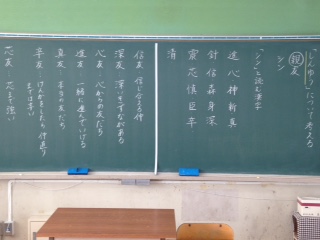 「しんゆう」について考える
親友
シン
「シン」と読む漢字
進 心 神 新 真
針 信 森 身 深
震 芯 慎 臣 辛
清
信友…信じ合える仲
深友…深いきずながある
心友…心からの友だち
進友…一緒に進んでいける
真友…本当の友だち
辛友…けんかをしたら仲直り
までは辛い
芯友…芯まで強い